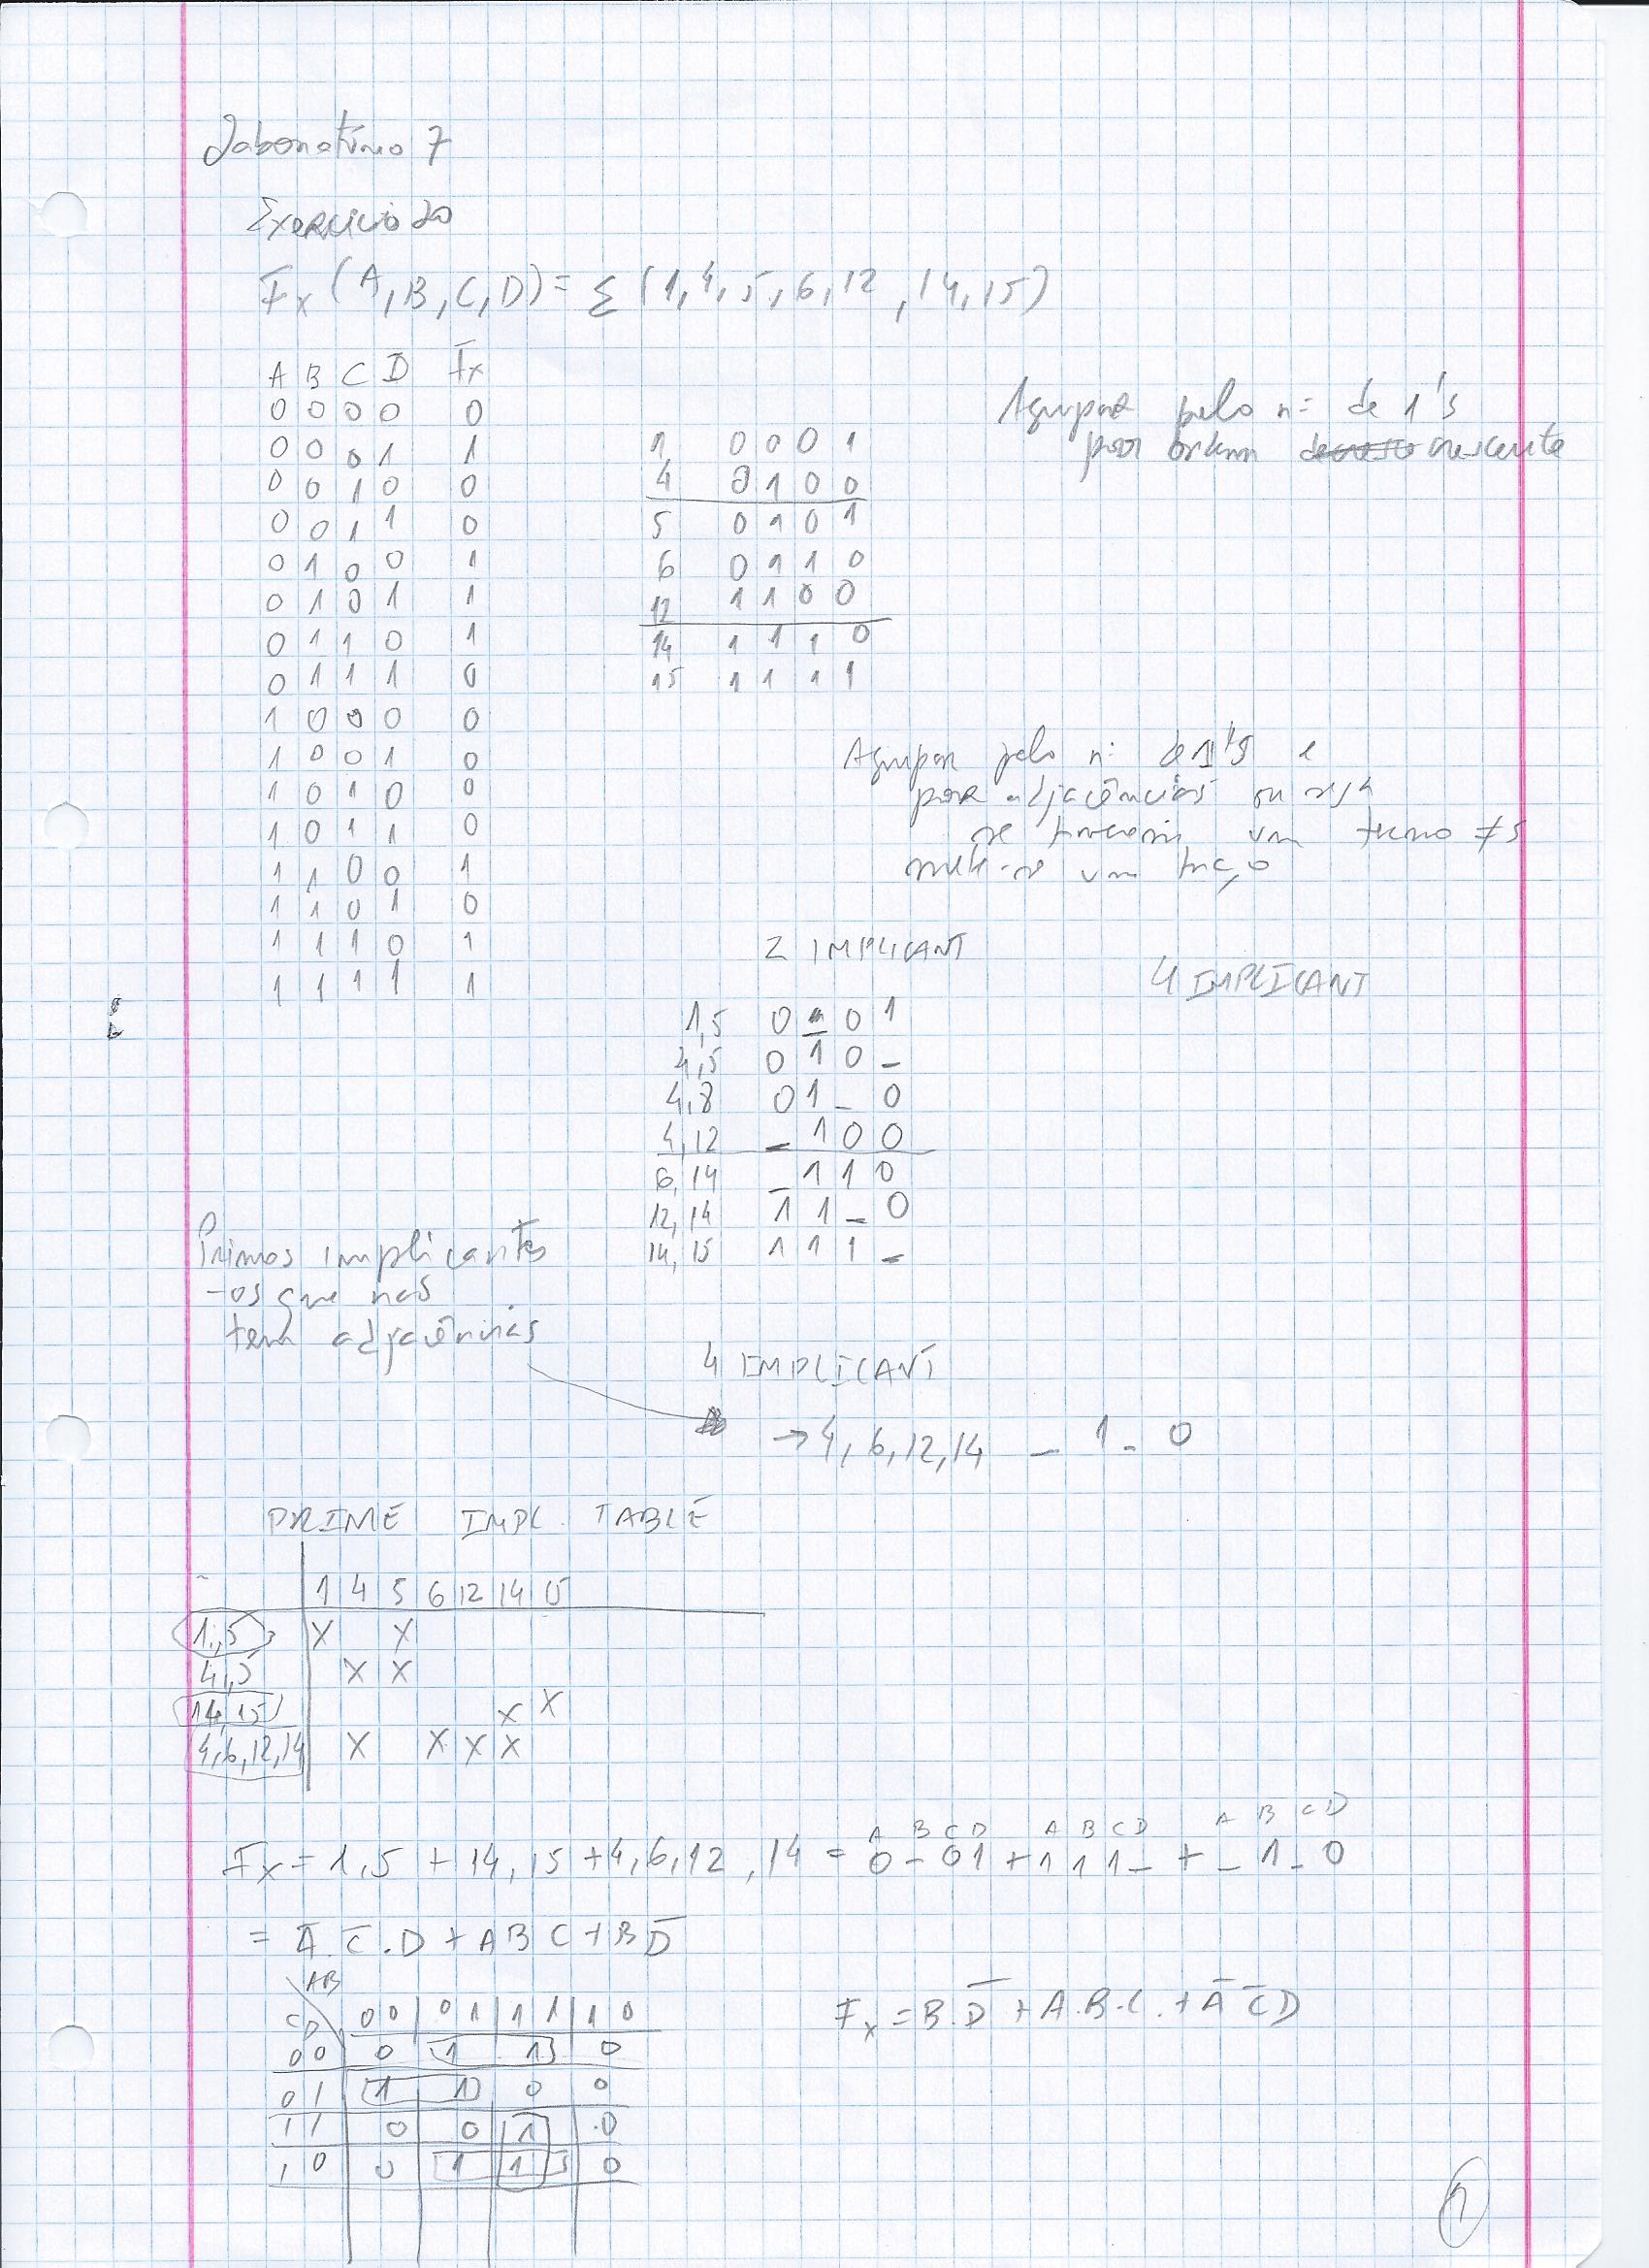 Laboratório 7
Exercício 20
Fx (A,B,C,D) = Σ (1,4,5,6,12,14,15)
A B C D Fx
0 0 0 0 0
0 0 0 1 1
0 0 1 0 0
0 0 1 1 0
0 1 0 0 1
0 1 0 1 1
0 1 1 0 1
0 1 1 1 0
1 0 0 0 0
1 0 0 1 0
1 0 1 0 0
1 0 1 1 0
1 1 0 0 1
1 1 0 1 0
1 1 1 0 1
1 1 1 1 1
Agrupar pelo nº de 1's
por ordem crescente
1 0 0 0 1
4 0 1 0 0
5 0 1 0 1
6 0 1 1 0
12 1 1 0 0
14 1 1 1 0
15 1 1 1 1
Agrupar pelo nº de 1's e
por adjacências ou seja
se tiverem um termo ≠s
mete-se um traço
2 IMPLICANT
4 IMPLICANT
1,5 0 _ 0 1
4,5 0 1 0 _
4,8 0 1 _ 0
4,12 _ 1 0 0
6,14 _ 1 1 0
12,14 1 1 _ 0
14,15 1 1 1 _
Primos implicantes
- os que nao
tem adjacências
4 IMPLICANT
→ 4,6,12,14 _ 1 _ 0
PRIME IMPL. TABLE
1 4 5 6 12 14 15
1,5 X X
4,5 X X
14,15 X X
4,6,12,14 X X X X
A B C D A B C D A B C D
Fx = 1,5 + 14,15 + 4,6,12,14 = 0 _ 0 1 + 1 1 1 _ + _ 1 _ 0
= A̅.C̅.D + A B C + B D̅
AB
CD 00 01 11 10
00 0 1 1 0
01 1 1 0 0
11 0 0 1 0
10 0 1 1 0
Fx = B.D̅ + A.B.C. + A̅ C̅ D
1